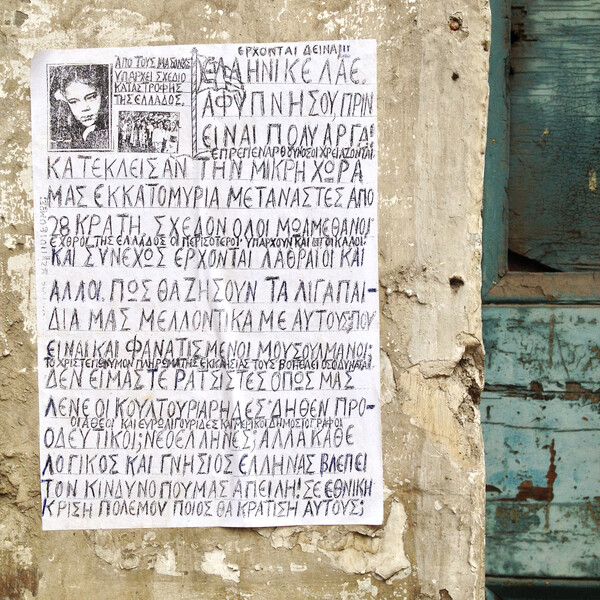 ΕΡΧΟΝΤΑΙ ΔΕΙΝΑ!!!
ΑΠΟ ΤΟΥΣ ΜΑΣΩΝΟΥΣ
ΥΠΑΡΧΕΙ ΣΧΕΔΙΟ
ΚΑΤΑΣΤΡΟΦΗΣ
ΤΗΣ ΕΛΛΑΔΟΣ.
ΕΛΛΗΝΙΚΕ ΛΑΕ.
ΑΦΥΠΝΗΣΟΥ, ΠΡΙΝ
ΕΙΝΑΙ ΠΟΛΥ ΑΡΓΑ!
ΕΠΡΕΠΕ ΝΑΡΘΟΥΝ ΟΣΟΙ ΧΡΕΙΑΖΟΝΤΑΙ
ΚΑΤΕΚΛΕΙΣΑΝ ΤΗΝ ΜΙΚΡΗ ΧΩΡΑ
ΜΑΣ ΕΚΚΑΤΟΜΥΡΙΑ ΜΕΤΑΝΑΣΤΕΣ ΑΠΟ
28 ΚΡΑΤΗ. ΣΧΕΔΟΝ ΟΛΟΙ ΜΩΑΜΕΘΑΝΟΙ
ΕΧΘΡΟΙ ΤΗΣ ΕΛΛΑΔΟΣ ΟΙ ΠΕΡΙΣΟΤΕΡΟΙ. ΥΠΑΡΧΟΥΝ ΚΑΙ ΚΑΛΟΙ.
ΚΑΙ ΣΥΝΕΧΩΣ ΕΡΧΟΝΤΑΙ ΛΑΘΡΑΙΟΙ ΚΑΙ
ΑΛΛΟΙ. ΠΩΣ ΘΑ ΖΗΣΟΥΝ ΤΑ ΛΙΓΑ ΠΑΙ-
ΔΙΑ ΜΑΣ ΜΕΛΛΟΝΤΙΚΑ ΜΕ ΑΥΤΟΥΣ; ΠΟΥ
ΕΙΝΑΙ ΚΑΙ ΦΑΝΑΤΙΣΜΕΝΟΙ ΜΟΥΣΟΥΛΜΑΝΟΙ;
ΤΟ ΧΡΙΣΤΕΠΩΝΥΜΟΝ ΠΛΗΡΩΜΑ ΤΗΣ ΕΚΚΛΗΣΙΑΣ ΤΟΥΣ ΒΟΗΘΕΙ
ΔΕΝ ΕΙΜΑΣΤΕ ΡΑΤΣΙΣΤΕΣ ΟΠΩΣ ΜΑΣ
ΛΕΝΕ ΟΙ ΚΟΥΛΤΟΥΡΙΑΡΗΔΕΣ ΔΗΘΕΝ ΠΡΟ-
ΟΙ ΑΘΕΟΙ ΚΑΙ ΕΥΡΩΛΙΓΟΥΡΙΔΕΣ ΚΑΙ ΜΕΡΙΚΟΙ ΔΗΜΟΣΙΟΓΡΑΦΟΙ
ΟΔΕΥΤΙΚΟΙ; ΝΕΟΕΛΛΗΝΕΣ; ΑΛΛΑ ΚΑΘΕ
ΛΟΓΙΚΟΣ ΚΑΙ ΓΝΗΣΙΟΣ ΕΛΛΗΝΑΣ ΒΛΕΠΕΙ
ΤΟΝ ΚΙΝΔΥΝΟ ΠΟΥ ΜΑΣ ΑΠΕΙΛΗ! ΣΕ ΕΘΝΙΚΗ
ΚΡΙΣΗ ΠΟΛΕΜΟΥ ΠΟΙΟΣ ΘΑ ΚΡΑΤΙΣΗ ΑΥΤΟΥΣ;